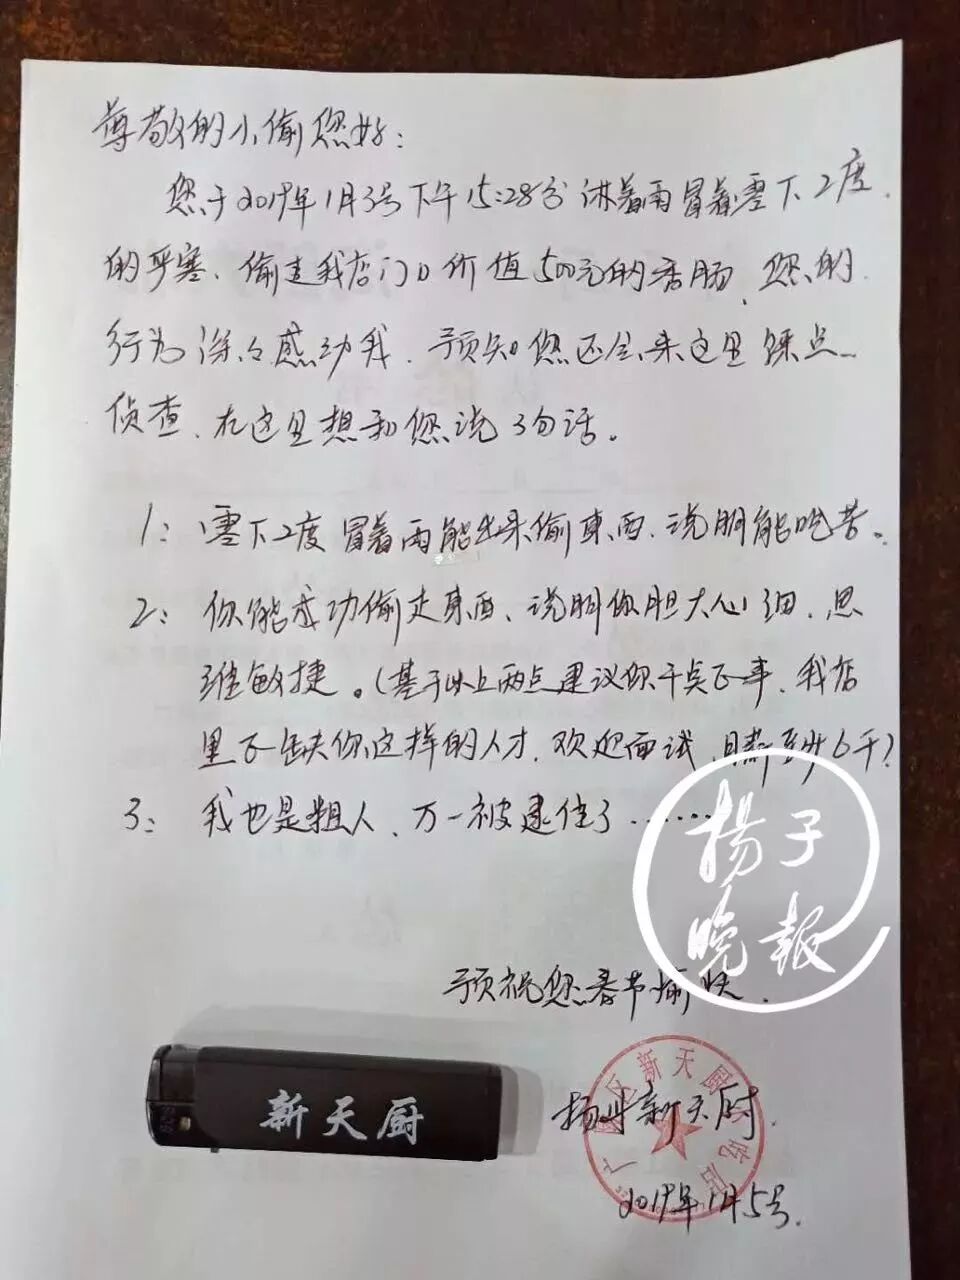 尊敬的小偷您好：
您于2019年1月3号下午15:28分淋着雨冒着零下2度
的严寒、偷走我店门口价值500元的香肠、您的
行为深深感动我、预知您还会来这里踩点
侦查、在这里想和您说3句话。
1：零下2度冒着雨能出来偷東西、说明能吃苦。
2：你能成功偷走東西、说明你胆大心细、思
维敏捷。(基于以上两点建议你干点正事、我店
里正缺你这样的人才、欢迎面试、月薪至少6千?
3：我也是粗人、万一被逮住了……
扬子
晚报
预祝您春节愉快.
新天厨
扬州新天厨.
区新天厨吃店
2019年1月5号.